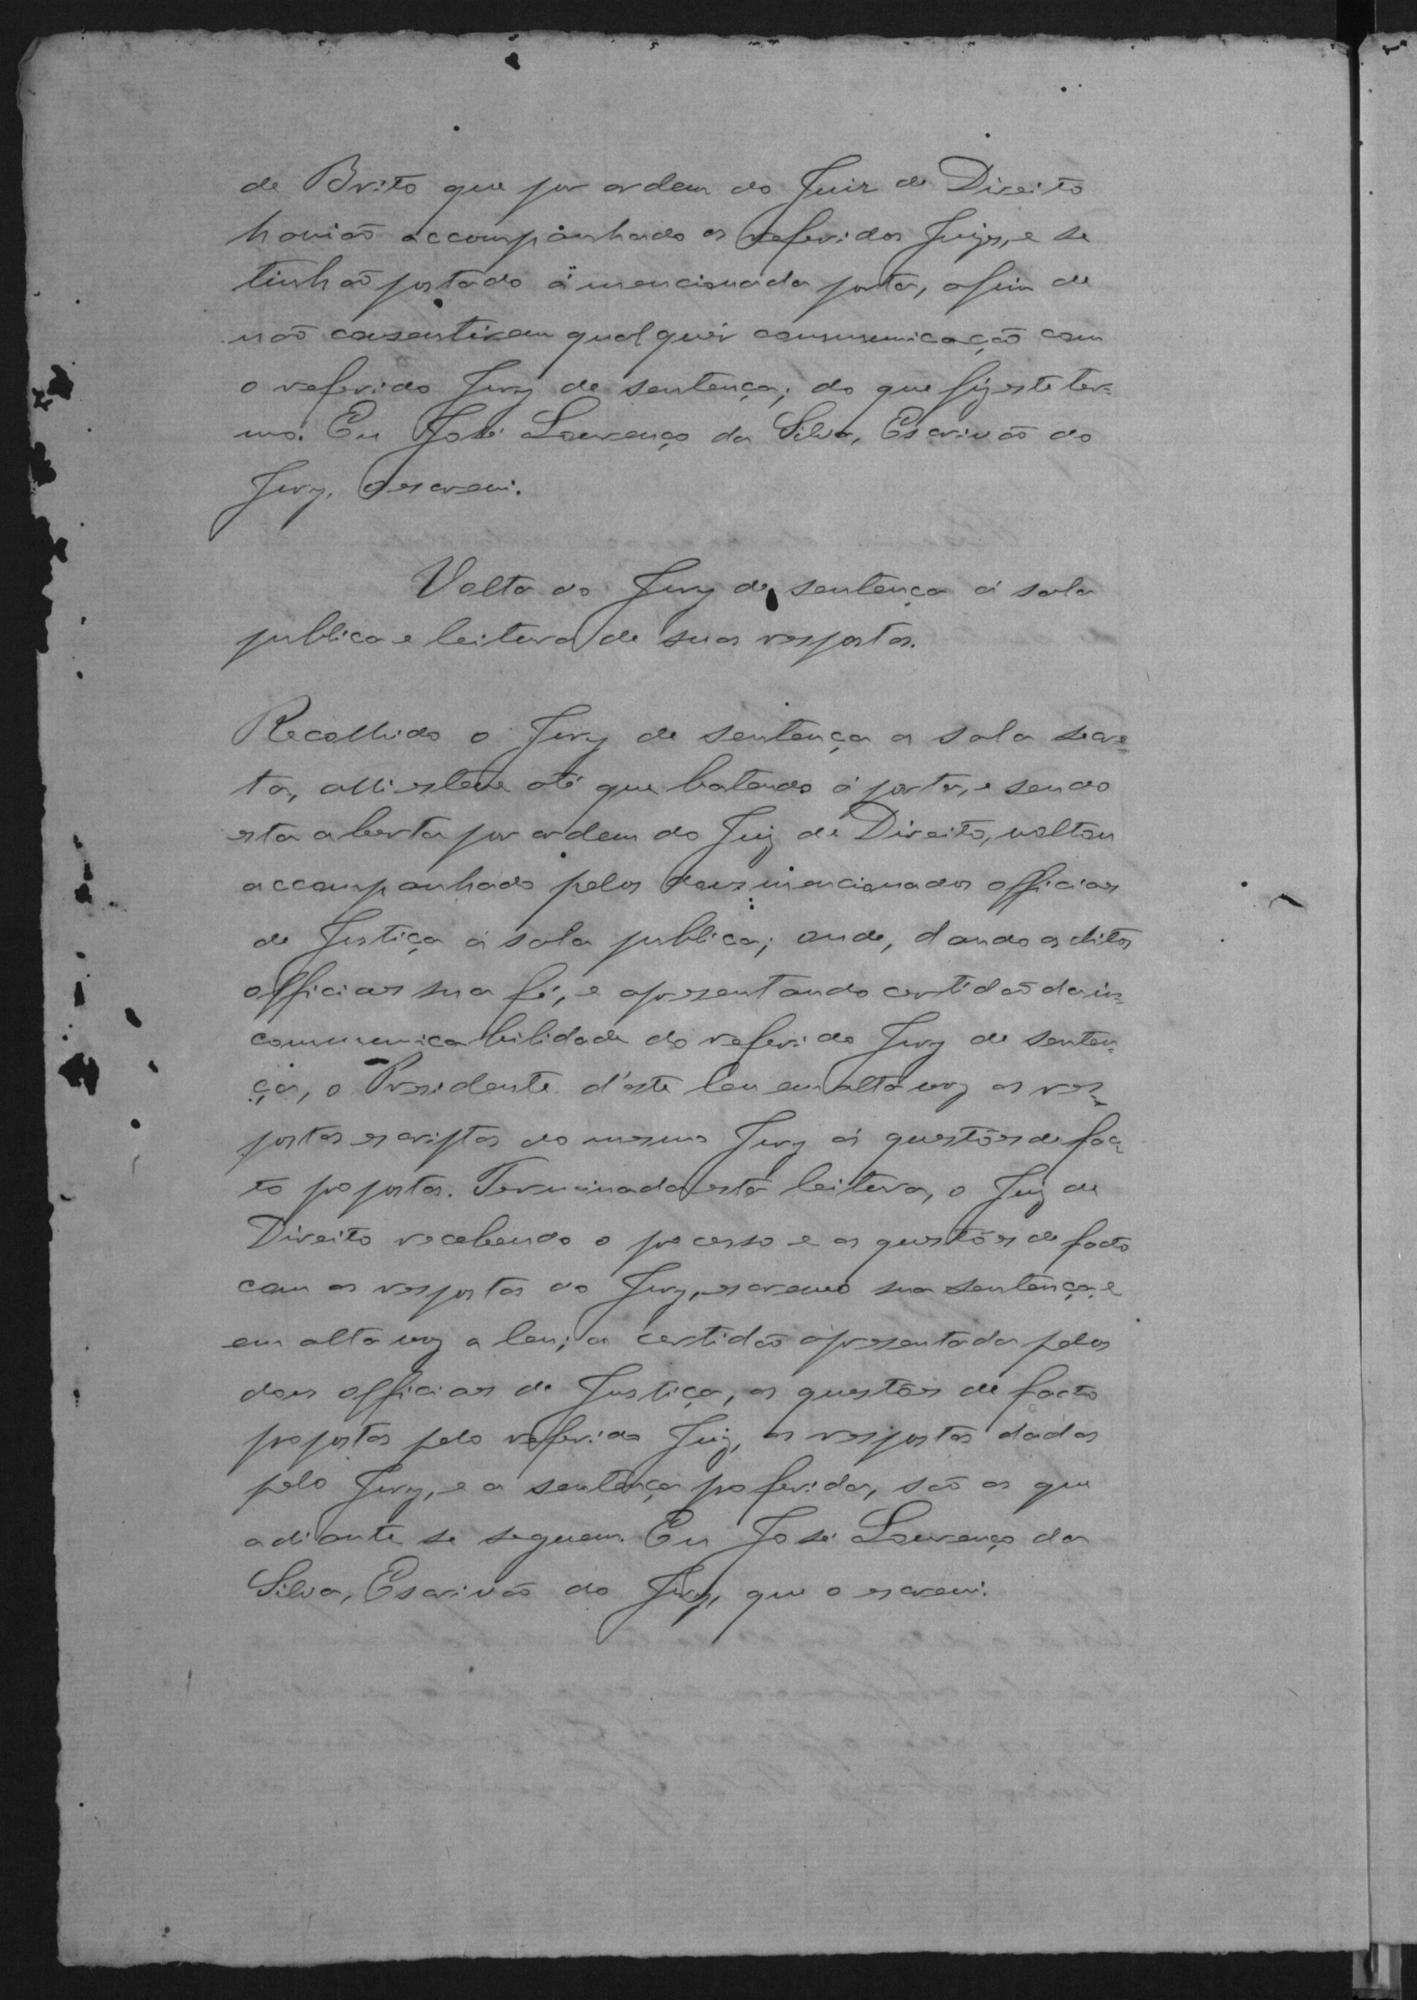 de Brito que por ordem do Juiz de Direito
havião accompanhado os referidos Juizes, e se
tinhão postado á mencionada porta, afim de
não consentirem qualquér communicação com
o referido Jury de sentença; do que fiz este ter=
mo. Eu José Lourenço da Silva, Escrivão do
Jury, o escrevi.
Volta do Jury de sentença á sala
publica e leitura de suas respostas.
Recolhido o Jury de sentença a sala secre=
ta, alli esteve até que batendo á porta, e sendo
esta aberta por ordem do Juiz de Direito, voltou
accompanhado pelos dous mencionados officiaes
de Justiça á sala publica; onde, dando os ditos
officiaes sua fé, e apresentando certidão da in=
communicabilidade do referido Jury de senten=
ça, o Presidente d'este leu em alta voz as res=
postas escriptas do mesmo Jury ás questões de fac=
to propostas. Terminada esta leitura, o Juiz de
Direito recebendo o processo e as questões de facto
com as respostas do Jury, escreveo sua sentença, e
em alta voz a leu; a certidão apresentada pelos
dous officiaes de Justiça, as questões de facto
propostas pelo referido Juiz, as respostas dadas
pelo Jury, e a sentença proferida, são as que
adiante se seguem. Eu José Lourenço da
Silva, Escrivão do Jury, que o escrevi.